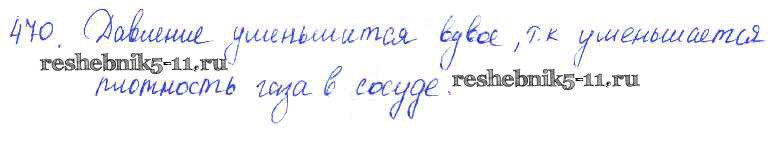 470. Давление уменьшится вдвое, т.к уменьшается
reshebnik5-11.ru
плотность газа в сосуде.
reshebnik5-11.ru